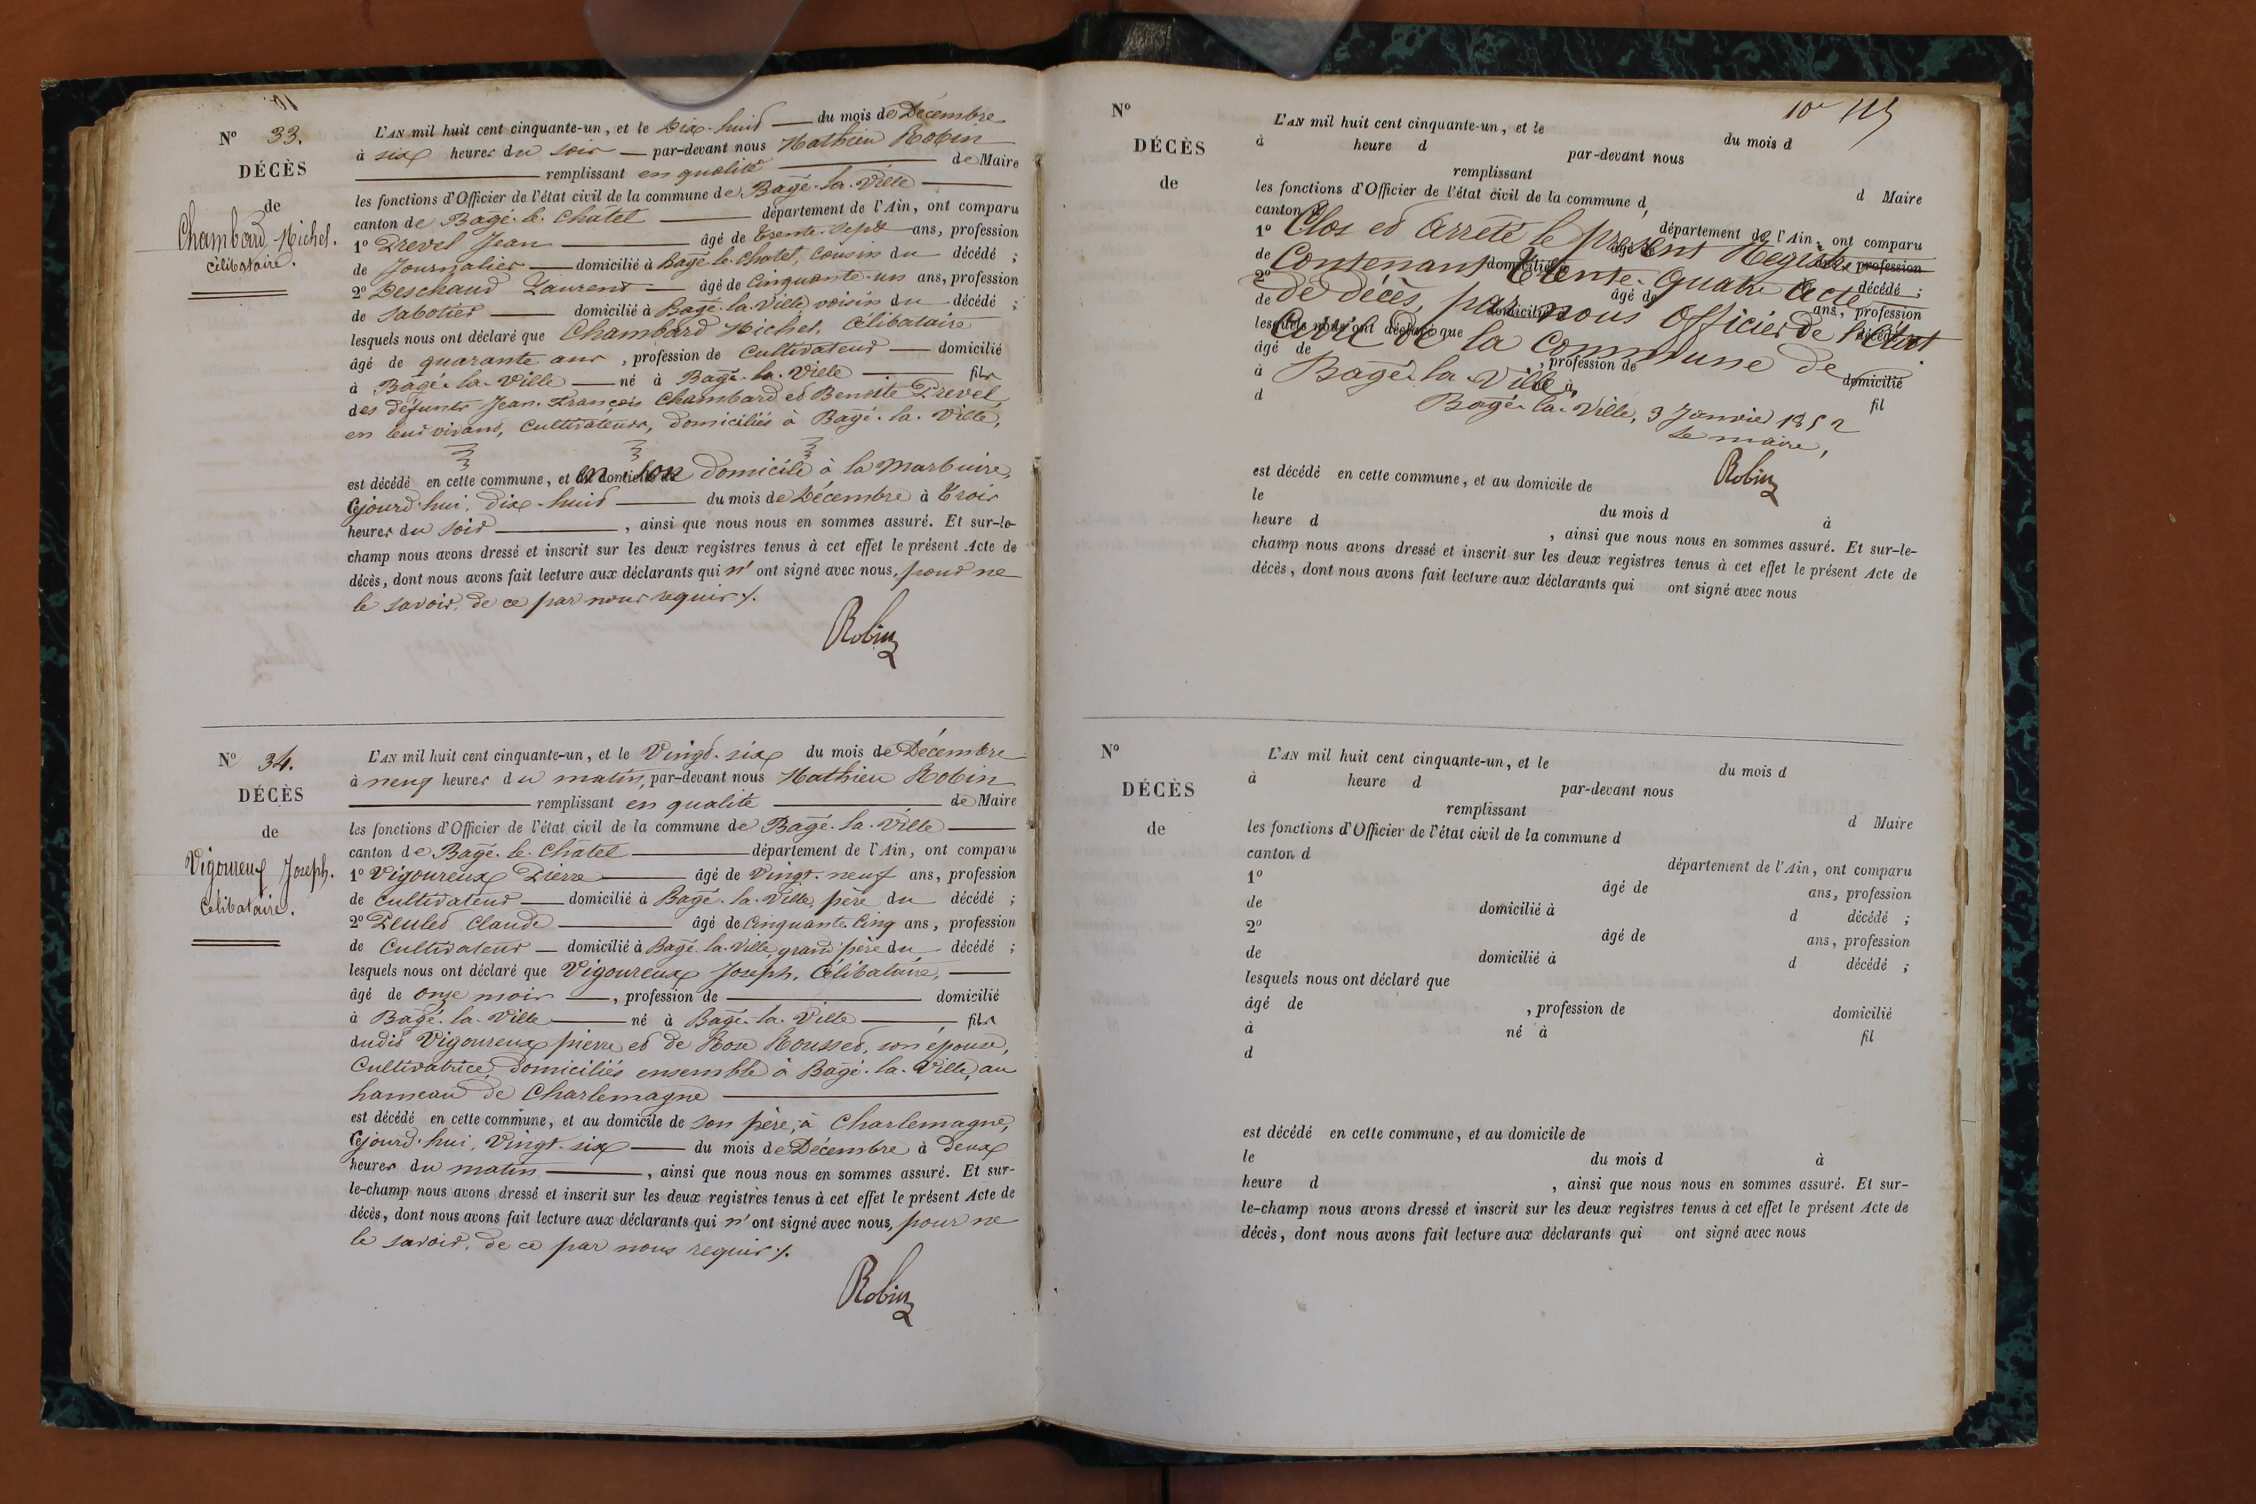 N° 33.
DÉCÈS
de
Chambard Michel.
célibataire.
L'AN mil huit cent cinquante-un, et le Dix-huit du mois de Décembre
à six heures du soir par-devant nous Mathieu Robin
remplissant en qualité de Maire
les fonctions d'Officier de l'état civil de la commune de Bagé-la-Ville
canton de Bagé-le-Châtel département de l'Ain, ont comparu
1° Prevel Jean âgé de trente-sept ans, profession
de Journalier domicilié à Bagé-le-Chatel, cousin du décédé ;
2° Deschaud Laurent âgé de Cinquante-un ans, profession
de Sabotier domicilié à Bagé-la-Ville, voisin du décédé ;
lesquels nous ont déclaré que Chambard Michel, Célibataire
âgé de quarante ans, profession de Cultivateur domicilié
à Bagé-la-Ville né à Bagé-la-Ville fils
des défunts Jean-François Chambard et Benoite Prevel,
en leur vivant, Cultivateurs, domiciliés à Bagé-la-Ville,
est décédé en cette commune, et en son domicile à la Marbuire,
Cejourd'hui, dix-huit du mois de Décembre à Trois
heures du soir, ainsi que nous nous en sommes assuré. Et sur-le-
champ nous avons dressé et inscrit sur les deux registres tenus à cet effet le présent Acte de
décès, dont nous avons fait lecture aux déclarants qui n'ont signé avec nous, pour ne
le savoir, de ce par nous requis ./.
Robin
N° 34.
DÉCÈS
de
Vigoureux Joseph.
Célibataire.
L'AN mil huit cent cinquante-un, et le Vingt-six du mois de Décembre
à neuf heures du matin, par-devant nous Mathieu Robin
remplissant en qualité de Maire
les fonctions d'Officier de l'état civil de la commune de Bagé-la-Ville
canton de Bagé-le-Châtel département de l'Ain, ont comparu
1° Vigoureux Pierre âgé de vingt-neuf ans, profession
de Cultivateur domicilié à Bagé-la-Ville, père du décédé ;
2° Claude âgé de Cinquante-Cinq ans, profession
de Cultivateur domicilié à Bagé-la-Ville, grand'père du décédé ;
lesquels nous ont déclaré que Vigoureux Joseph, Célibataire,
âgé de onze mois, profession de domicilié
à Bagé-la-Ville né à Bagé-la-Ville fils
dudit Vigoureux pierre et de Rose Rousset, son épouse,
Cultivatrice, domiciliés ensemble à Bagé-la-Ville, au
hameau de Charlemagne
est décédé en cette commune, et au domicile de son père, à Charlemagne,
Cejourd'hui, Vingt-six du mois de Décembre à deux
heures du matin, ainsi que nous nous en sommes assuré. Et sur-
le-champ nous avons dressé et inscrit sur les deux registres tenus à cet effet le présent Acte de
décès, dont nous avons fait lecture aux déclarants qui n'ont signé avec nous, pour ne
le savoir, de ce par nous requis ./.
Robin
N°
DÉCÈS
de
L'AN mil huit cent cinquante-un, et le du mois d
à heure d par-devant nous
remplissant d Maire
les fonctions d'Officier de l'état civil de la commune d
canton d département de l'Ain, ont comparu
1° âgé de ans, profession
de domicilié à décédé ;
2° âgé de ans, profession
de domicilié décédé
lesquels nous ont déclaré que
âgé de , profession de domicilié
à né à fil
d
Clos et arrêté le présent Registre
Contenant Trente-quatre Acte
de décès, par nous officier de l'état
Civil de la Commune de
Bagé-la-Ville à
Bagé-la-Ville, 3 Janvier 1852
Le maire,
Robin
est décédé en cette commune, et au domicile de
le du mois d à
heure d , ainsi que nous nous en sommes assuré. Et sur-le-
champ nous avons dressé et inscrit sur les deux registres tenus à cet effet le présent Acte de
décès, dont nous avons fait lecture aux déclarants qui ont signé avec nous
N°
DÉCÈS
de
L'AN mil huit cent cinquante-un, et le du mois d
à heure d par-devant nous
remplissant d Maire
les fonctions d'Officier de l'état civil de la commune d
canton d département de l'Ain, ont comparu
1° âgé de ans, profession
de domicilié à d décédé ;
2° âgé de ans, profession
de domicilié à d décédé ;
lesquels nous ont déclaré que
âgé de , profession de domicilié
à né à fil
d
est décédé en cette commune, et au domicile de
le du mois d à
heure d , ainsi que nous nous en sommes assuré. Et sur-
le-champ nous avons dressé et inscrit sur les deux registres tenus à cet effet le présent Acte de
décès, dont nous avons fait lecture aux déclarants qui ont signé avec nous